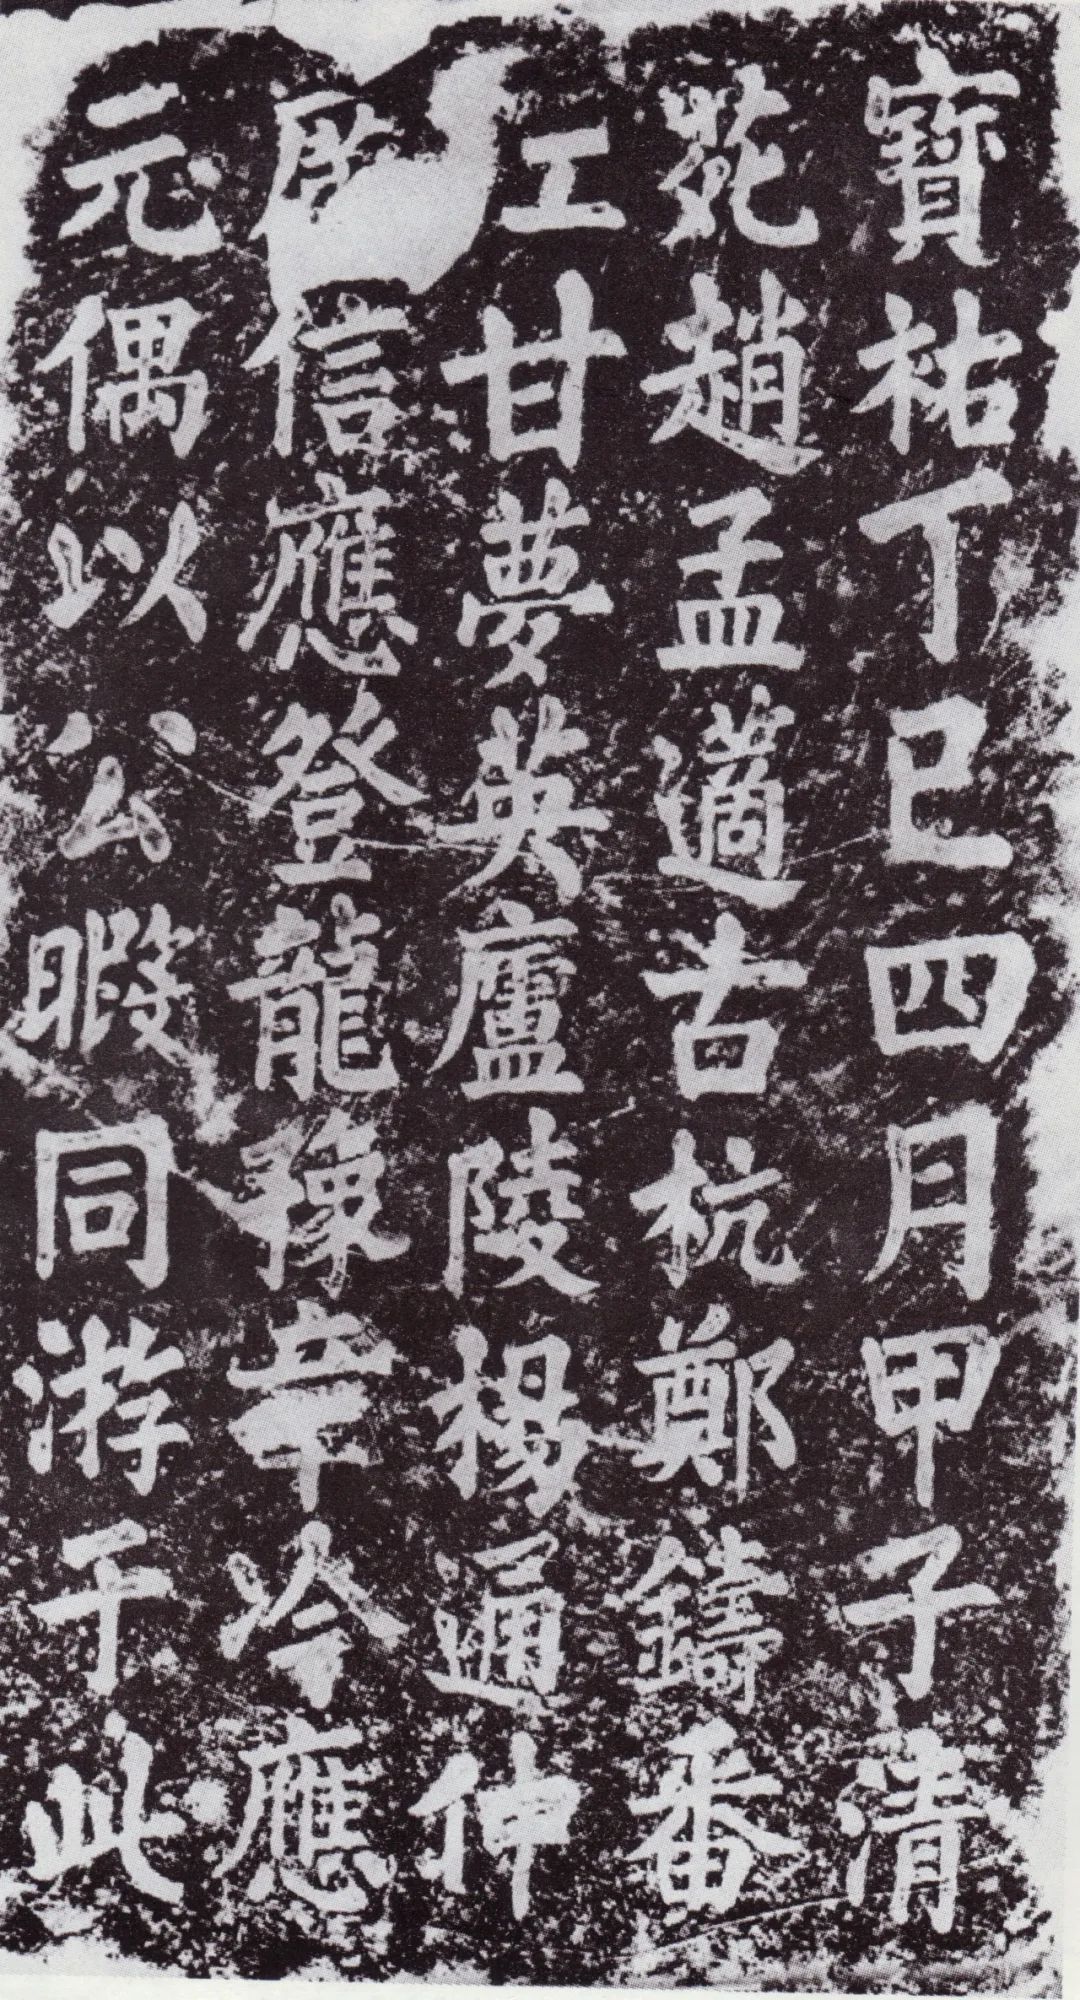 寶祐丁巳四月甲子清
苑趙孟適古杭鄭鑄番
江甘夢英廬陵楊通仲
信應登龍豫章冷應
元偶以公暇同游于此